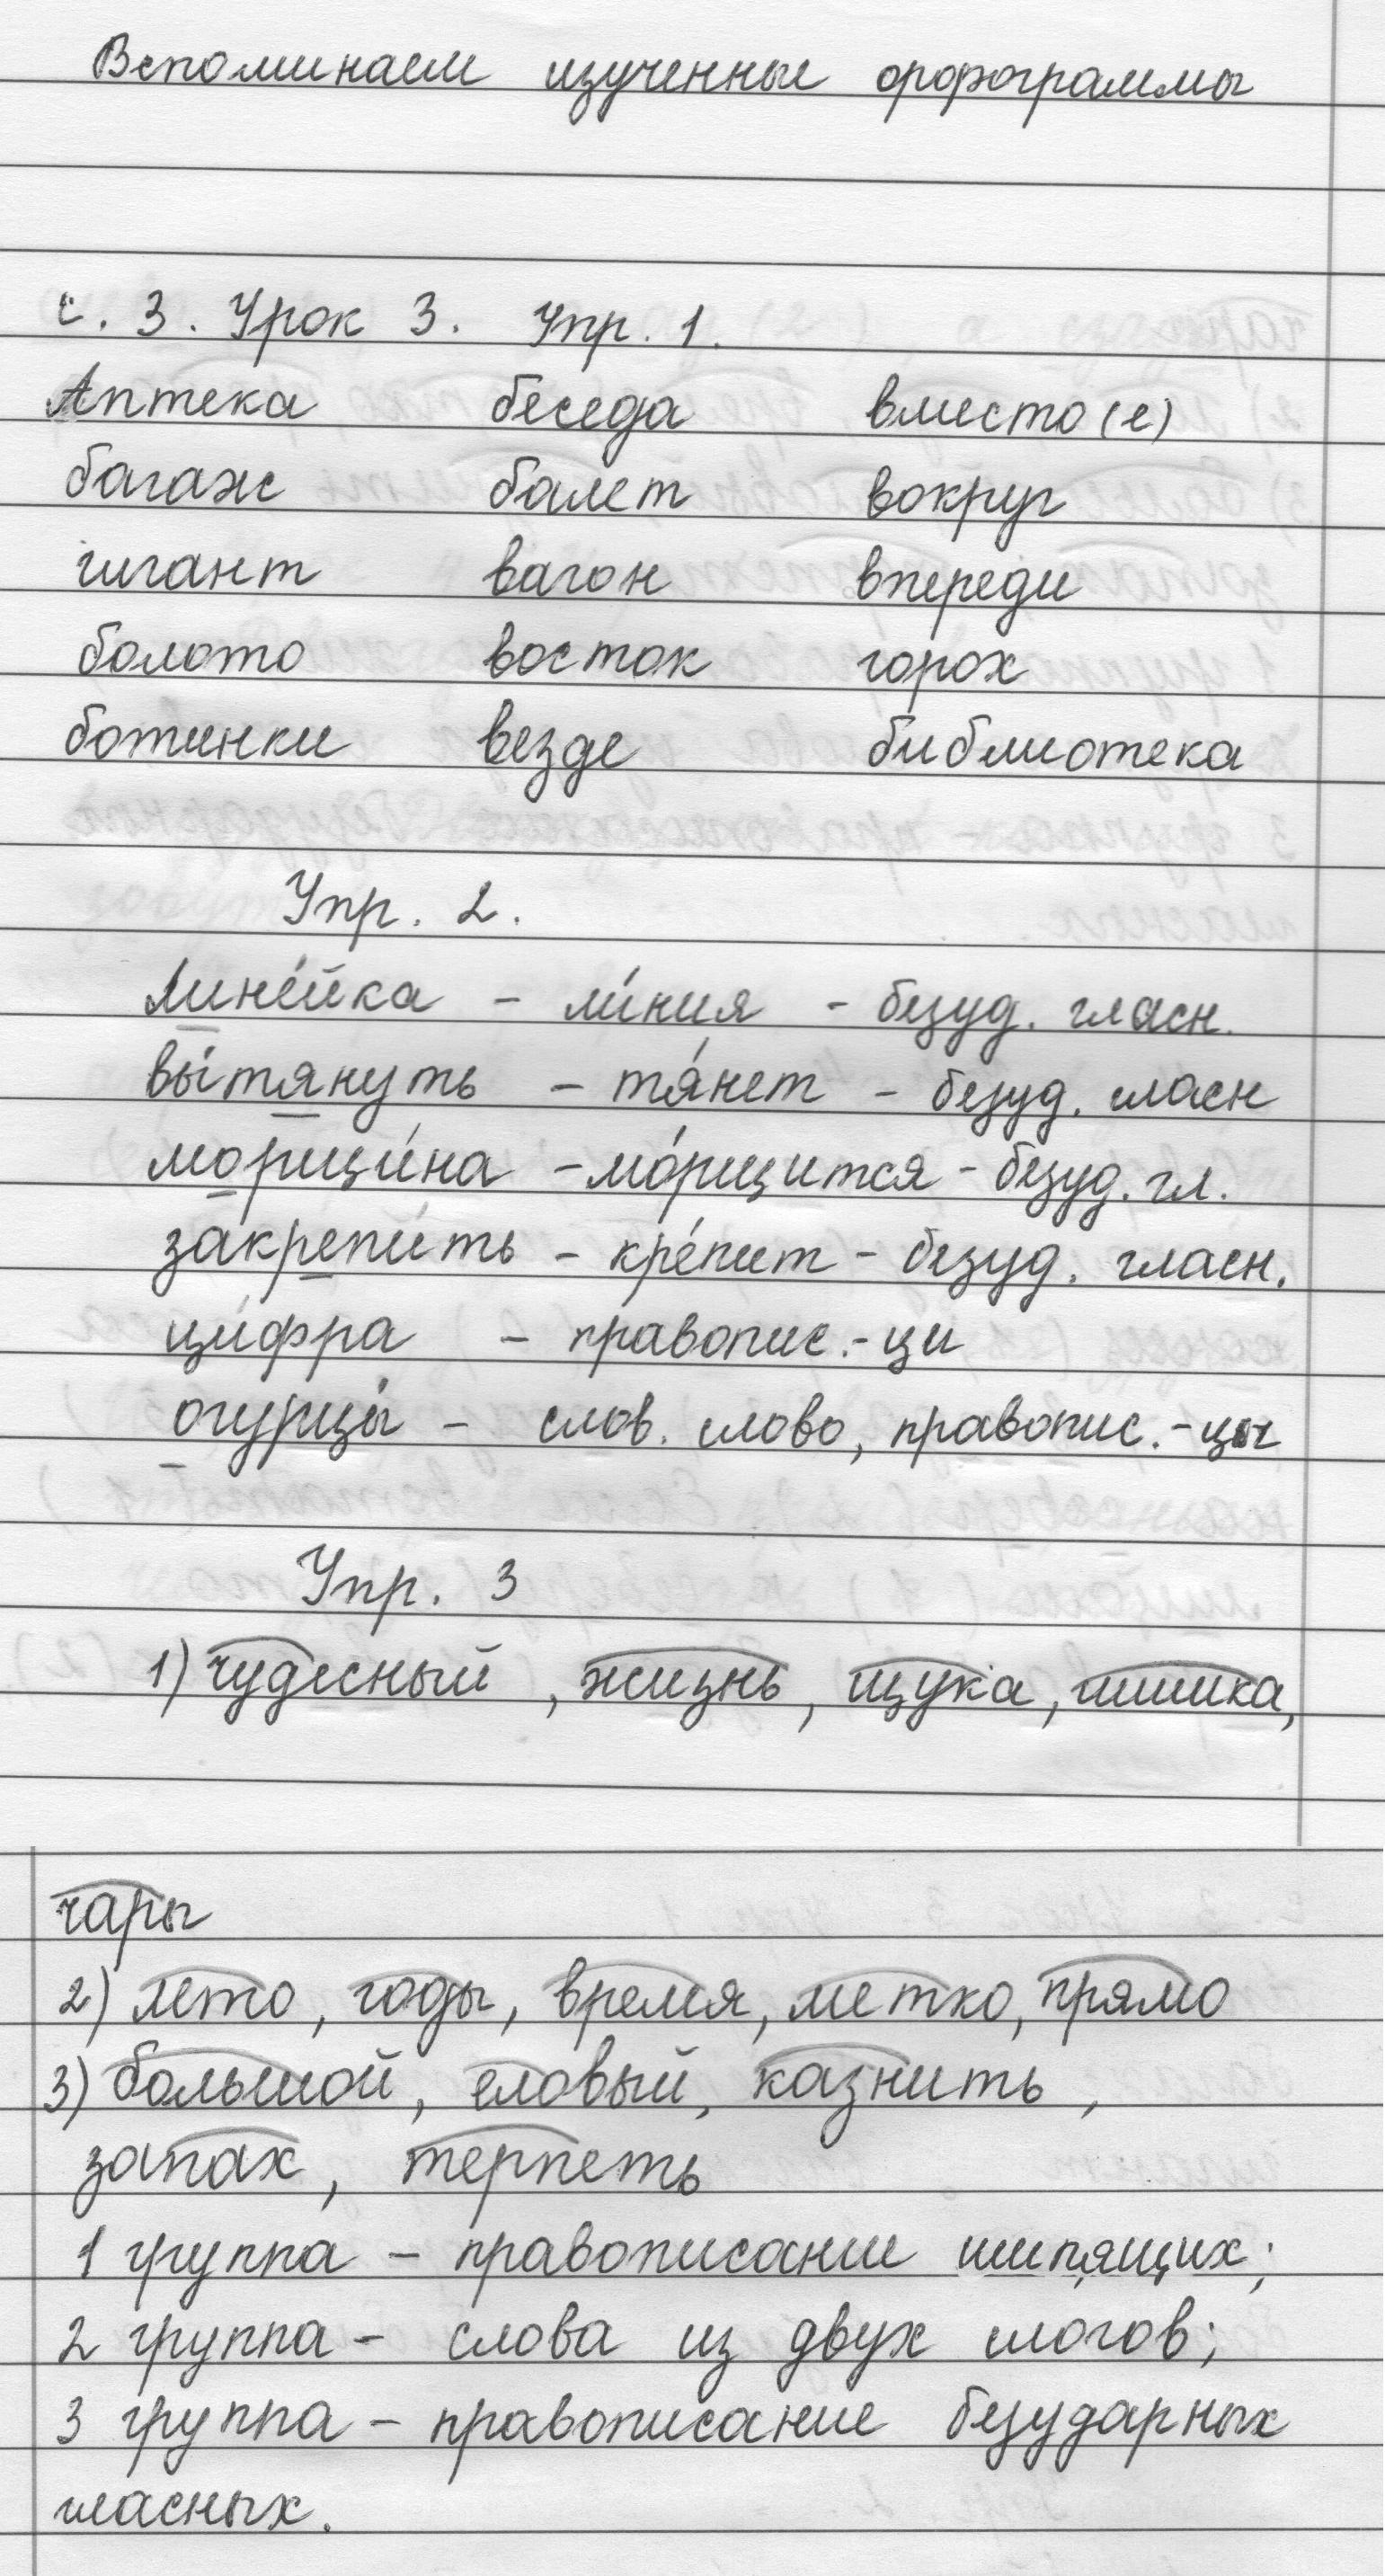 Вспоминаем изученные орфограммы
с. 3. Урок 3. Упр. 1.
Аптека беседа вместо (е)
багаж балет вокруг
гигант вагон впереди
болото восток горох
ботинки везде библиотека
Упр. 2.
Лине́йка - ли́ния - безуд. гласн.
вы́тянуть - тя́нет - безуд. гласн
морщи́на - мо́рщится - безуд. гл.
закрепи́ть - кре́пит - безуд. гласн.
ци́фра - правопис. - ци
огурцы́ - слов. слово, правопис. - цы
Упр. 3
1) чудесный, жизнь, щука, шишка,
чары
2) лето, годы, время, метко, прямо
3) большой, еловый, казнить,
запах, терпеть
1 группа - правописание шипящих;
2 группа - слова из двух слогов;
3 группа - правописание безударных
гласных.